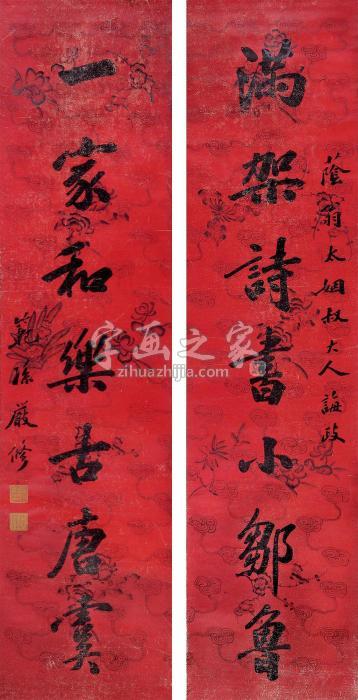 蔭翁太姻叔大人誨政
滿架詩書小鄒魯
一家和樂古唐虞
範孫嚴修
字画之家
zihuazhijia.com